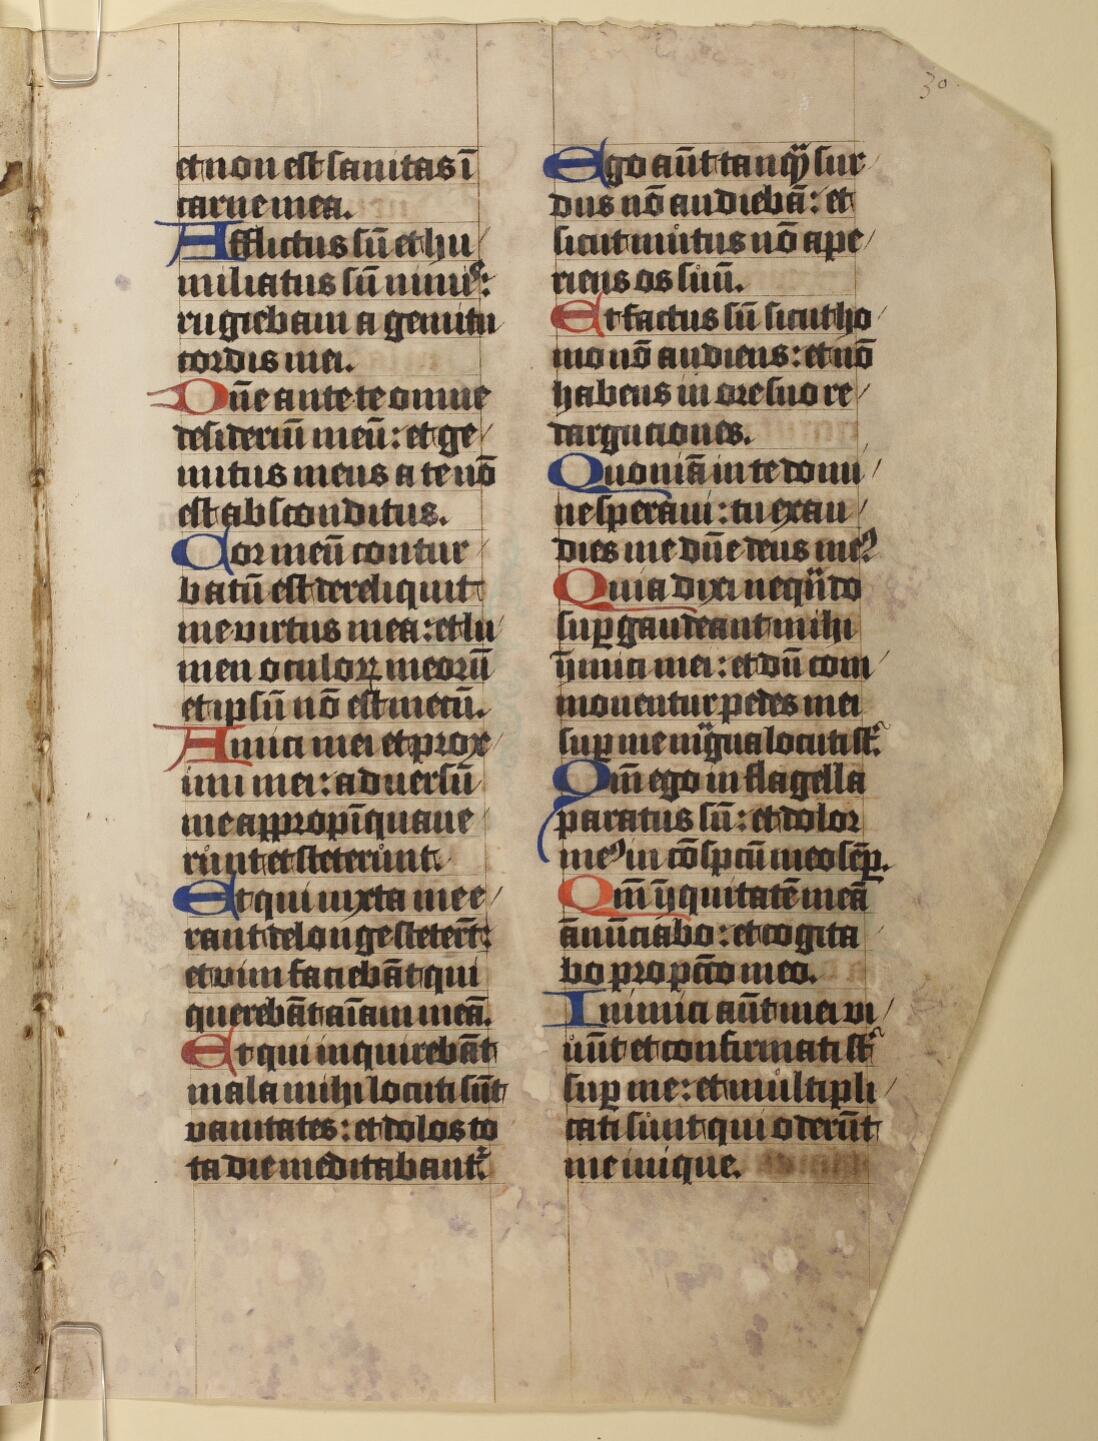 30
et non est sanitas ī
carne mea.
Afflictus sū et hu/
miliatus sū nimis:
rugiebam a gemitu
cordis mei.
Dn̄e ante te omne
desideriū meū: et ge/
mitus meus a te nō
est absconditus.
Cor meū contur/
batū est dereliquit
me virtus mea: et lu/
men oculoꝝ meorū
et ipsū nō est mecū.
Amici mei et prox/
imi mei: aduersū
me appropīquaue/
runt et steterunt.
Et qui iuxta me e/
rant de longe steterūt:
et vim faciebāt qui
querebāt aīam meā.
Et qui inquirebāt
mala mihi locuti sūt
vanitates: et dolos to
ta die meditabantᷣ
Ego aūt tanqͣ sur/
dus nō audiebā: et
sicut mutus nō ape/
riens os suū.
Et factus sū sicut ho/
mo nō audiens: et nō
habens in ore suo re/
darguciones.
Quoniā in te domi/
ne speraui: tu exau/
dies me dn̄e deus meꝰ
Quia dixi neqn̄do
suꝑ gaudeant mihi
īimici mei: et dū com/
mouentur pedes mei
suꝑ me magͣ locuti st̄.
Qm̄ ego in flagella
paratus sū: et dolor
meꝰ in cōspcū meo sēꝑ.
Qm̄ īiquitatē meā
ānūciabo: et cogita
bo pro pcc̄o meo.
Inimici aūt mei vi/
uūt et confirmati st̄
suꝑ me: et multipli/
cati sunt qui oderūt
me inique.